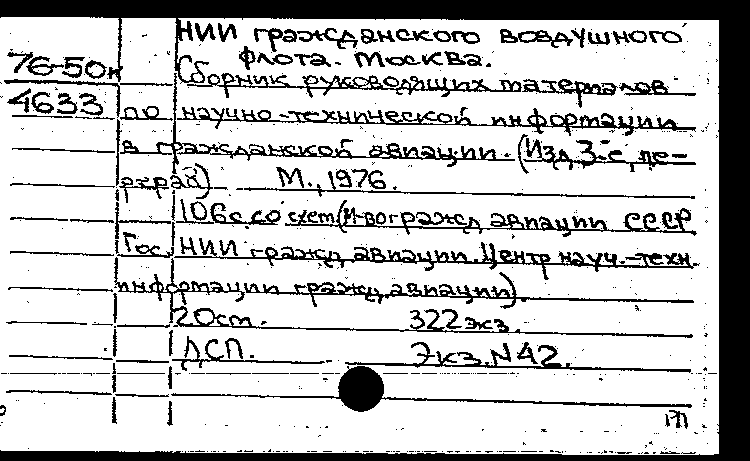 НИИ гражданского воздушного
флота. Москва.
76-50к
Сборник руководящих материалов
4633
по научно-технической информации
в гражданской авиации. (Изд. 3-е, пе-
рераб) М., 1976.
106с. со схем (М-во гражд авиации СССР
Гос. НИИ гражд авиации. Центр науч.-техн.
информации гражд. авиации).
20см. 322 экз.
ДСП. Экз. N42.